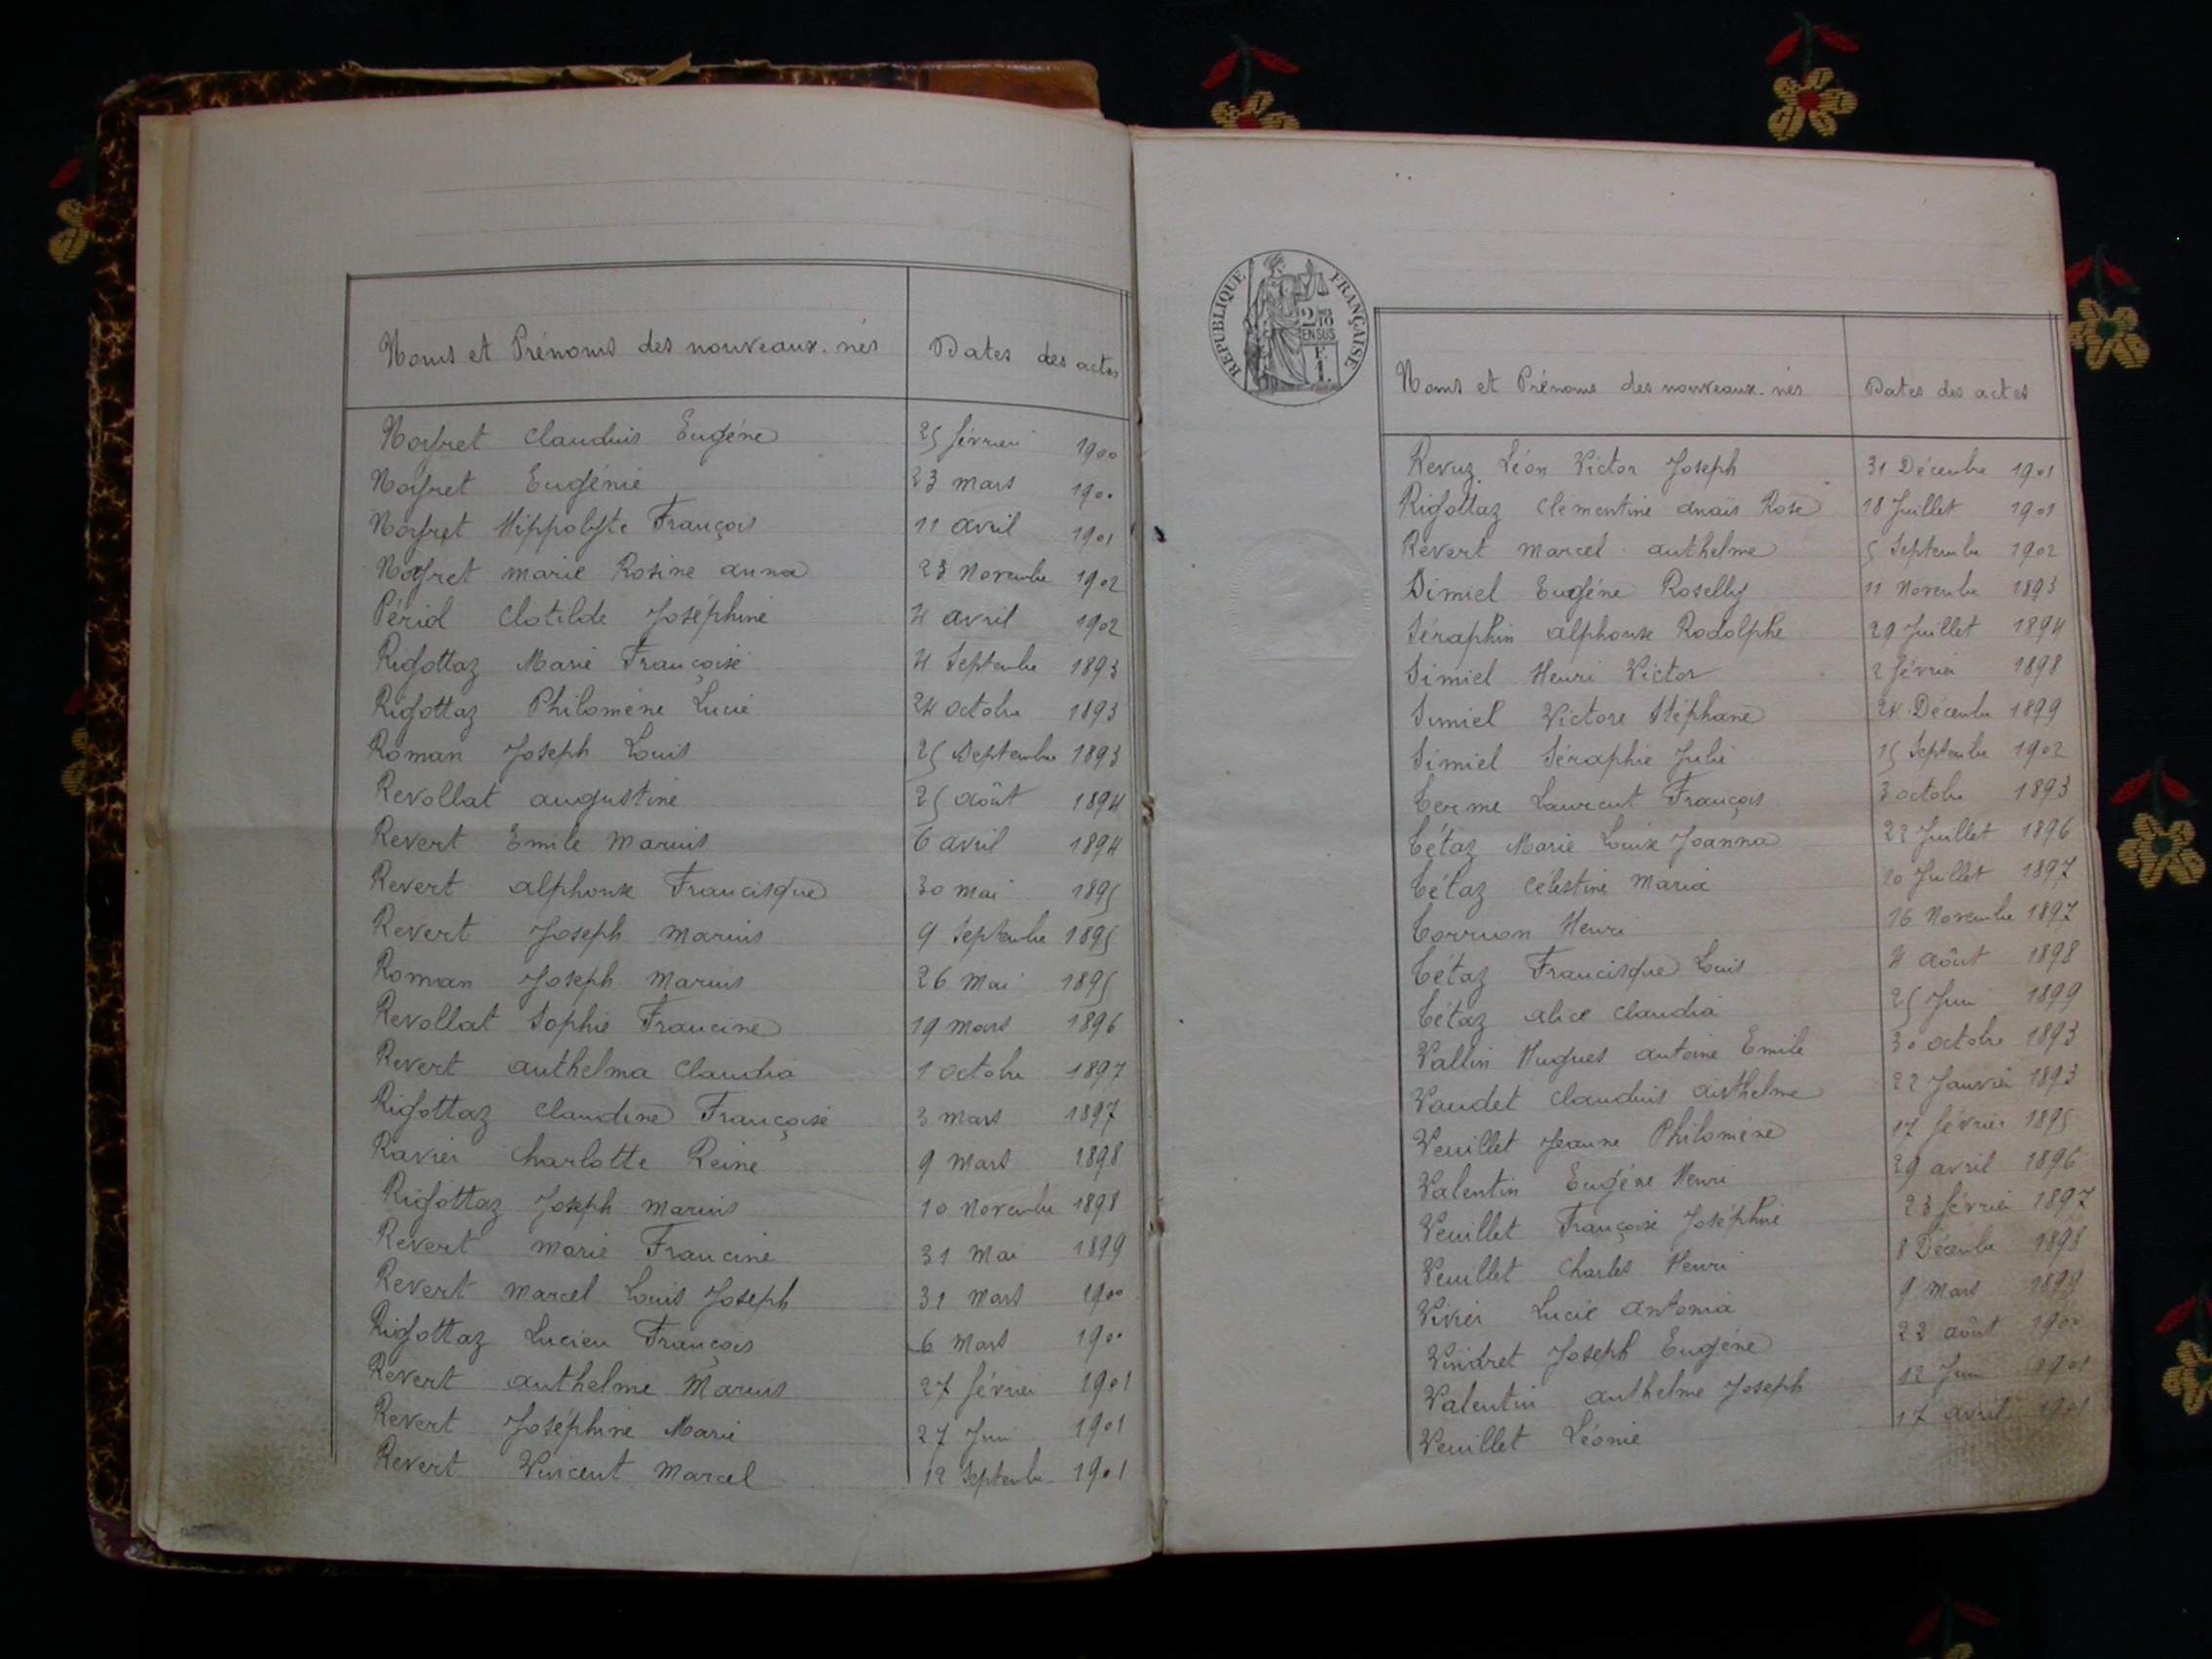 Noms et Prénoms des nouveaux-nés Dates des actes
Noyret Claudius Eugène 25 février 1900
Noyret Eugénie 23 mars 1900
Noyret Hippolyte François 11 avril 1901
Noyret marie Rosine anna 23 Novembre 1902
Périd Clotilde Joséphine 4 avril 1902
Rigottaz Marie Françoise 4 Septembre 1893
Rigottaz Philomène Lucie 24 octobre 1893
Roman Joseph Louis 25 Septembre 1893
Revollat augustine 25 août 1894
Revert Emile Marius 6 avril 1894
Revert alphonse Francisque 30 mai 1895
Revert Joseph Marius 9 Septembre 1895
Roman Joseph Marius 26 Mai 1895
Revollat Sophie Francine 19 Mars 1896
Revert anthelma Claudia 1 octobre 1897
Rigottaz Claudine Françoise 3 mars 1897
Ravier Charlotte Reine 9 Mars 1898
Rigottaz Joseph Marius 10 Novembre 1898
Revert Marie Francine 31 Mai 1899
Revert Marcel Louis Joseph 31 Mars 1900
Rigottaz Lucien François 6 Mars 1900
Revert anthelme Marius 27 février 1901
Revert Joséphine Marie 27 Juin 1901
Revert Vincent Marcel 12 Septembre 1901
RÉPUBLIQUE FRANÇAISE
2/10
EN SUS
1 F.
Noms et Prénoms des nouveaux-nés Dates des actes
Revuz Léon Victor Joseph 31 Décembre 1901
Rigottaz Clémentine anaïs Rose 18 Juillet 1901
Revert Marcel anthelme 5 Septembre 1902
Simiel Eugène Roselly 11 Novembre 1893
Séraphin alphonse Rodolphe 29 Juillet 1894
Simiel Henri Victor 2 février 1898
Simiel Victore Stéphane 24 Décembre 1899
Simiel Séraphie Julie 15 Septembre 1902
Terme Laurent François 3 octobre 1893
Tétaz Marie Louise Joanna 22 Juillet 1896
Tétaz Célestine Maria 10 Juillet 1897
Torrion Henri 16 Novembre 1897
Tétaz Francisque Louis 4 août 1898
Tétaz alice Claudia 25 Juin 1899
Vallin Hugues antoine Emile 30 octobre 1893
Vaudet Claudius anthelme 22 Janvier 1893
Veuillet Jeanne Philomène 17 février 1895
Valentin Eugène Henri 29 avril 1896
Veuillet Françoise Joséphine 23 février 1897
Veuillet Charles Henri 8 Décembre 1898
Vivier Lucie antonia 9 Mars 1899
Vindret Joseph Eugène 22 août 1900
Valentin anthelme Joseph 12 Juin 1901
Veuillet Léonie 17 avril 1901